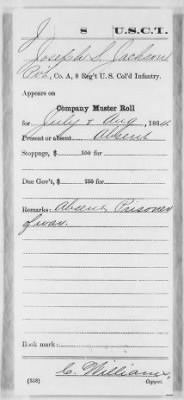 J 8 U.S.C.T.
Joseph S. Jackson
Pvt., Co. A, 8 Reg't U.S. Col'd Infantry.
Appears on
Company Muster Roll
for July & Aug, 1864.
Present or absent Absent
Stoppage, $ 100 for
Due Gov't, $ 100 for
Remarks: Absent Prisoner
of war.
Book mark:
C. Williams
(358) Copyist.